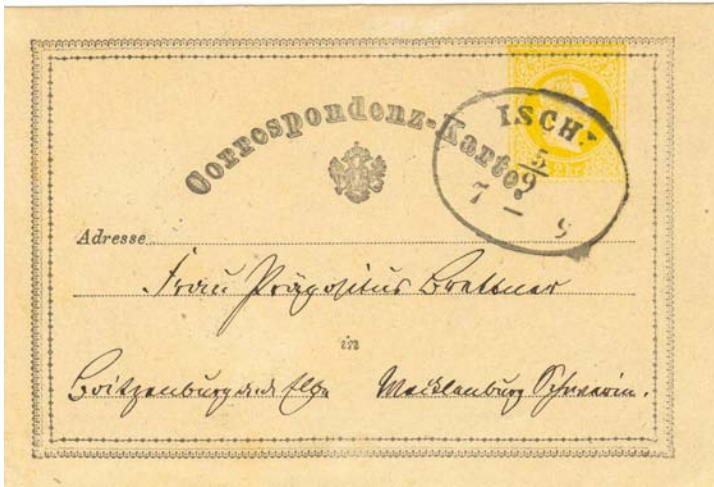 Correspondenz-Karte.
ISCH
5
9
7 — 9
Adresse
Frau Präpositus
in
Boitzenburg a. d. Elbe Mecklenburg Schwerin.